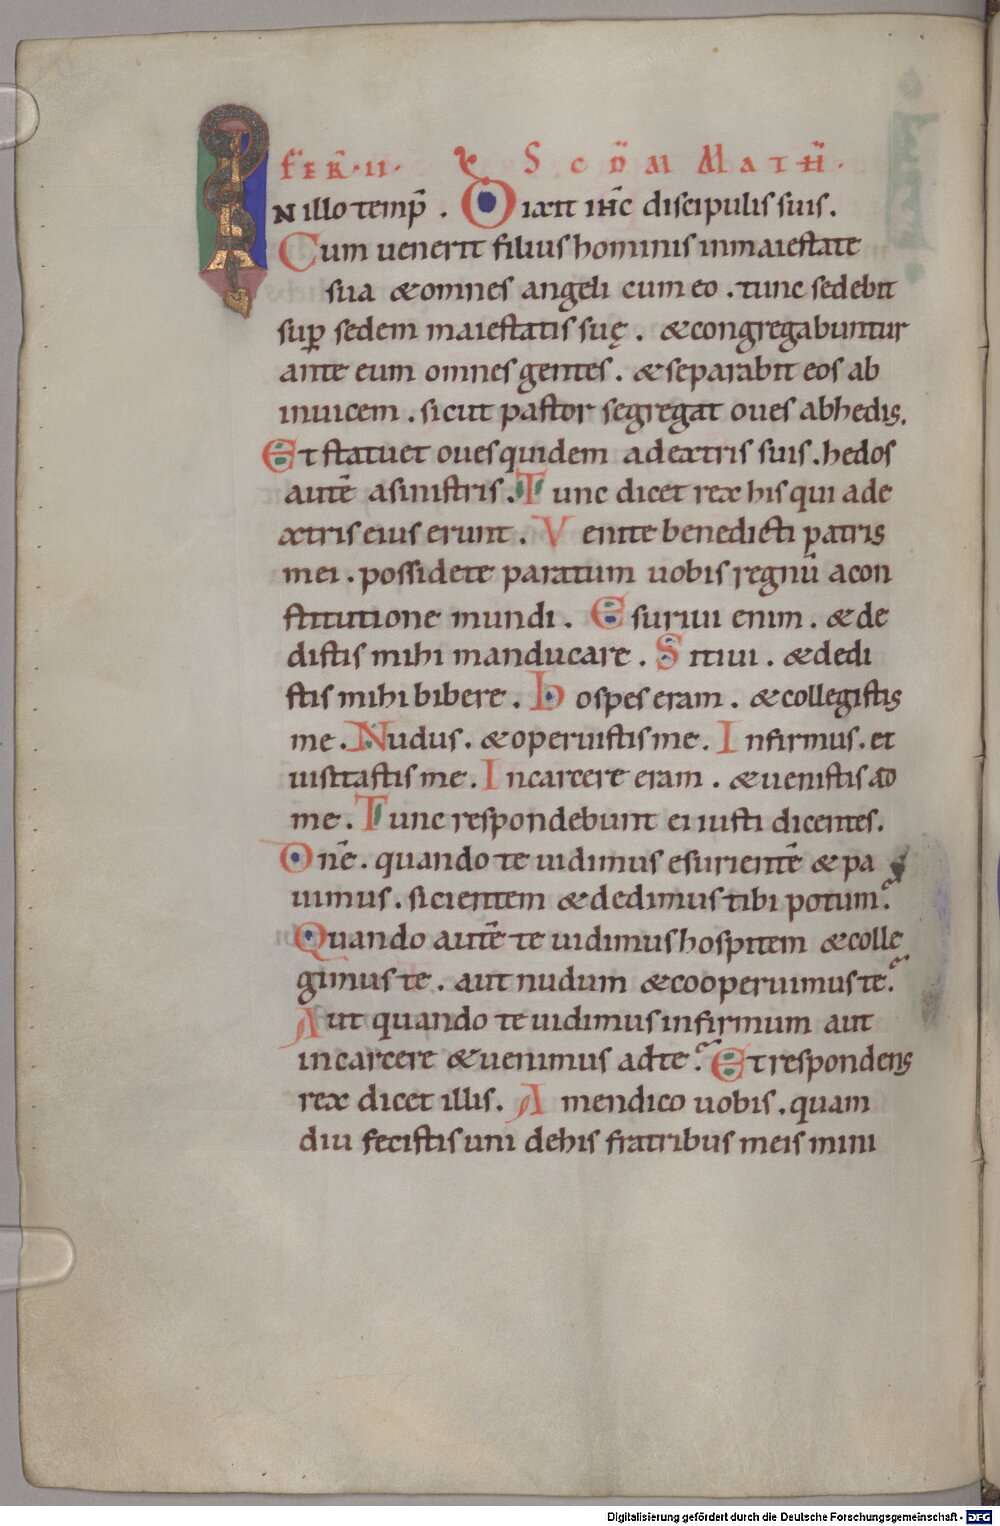 FER̄·II· S C D̄M MATH̄·
IN illo temp̄ . Dixit ih̄c discipulis suis.
Cum uenerit filius hominis inmaiestate
sua &omnes angeli cum eo . tunc sedebit
sup̄ sedem maiestatis suę . &congregabuntur
ante eum omnes gentes . &separabit eos ab
inuicem . sicut pastor segregat oues abhedis.
Et statuet oues quidem adextris suis . hedos
autē asinistris . Tunc dicet rex his qui ade
xtris eius erunt . Venite benedicti patris
mei . possidete paratum uobis regnū acon
stitutione mundi . Esuriui enim . &de
distis mihi manducare . Sitiui . &dedi
stis mihi bibere . hospes eram . &collegistis
me . Nudus . &operuistis me . Infirmus . et
uisitastis me . Incarcere eram . &uenistis ad
me . Tunc respondebunt ei iusti dicentes.
Dn̄e . quando te uidimus esurientē & pa
uimus . sicientem &dedimus tibi potum?
Quando autē te uidimus hospitem &colle
gimus te . aut nudum &cooperuimus te?
Aut quando te uidimus infirmum aut
incarcere &uenimus adte? Et respondens
rex dicet illis . Amendico uobis . quam
diu fecistis uni dehis fratribus meis mini
Digitalisierung gefördert durch die Deutsche Forschungsgemeinschaft - DFG